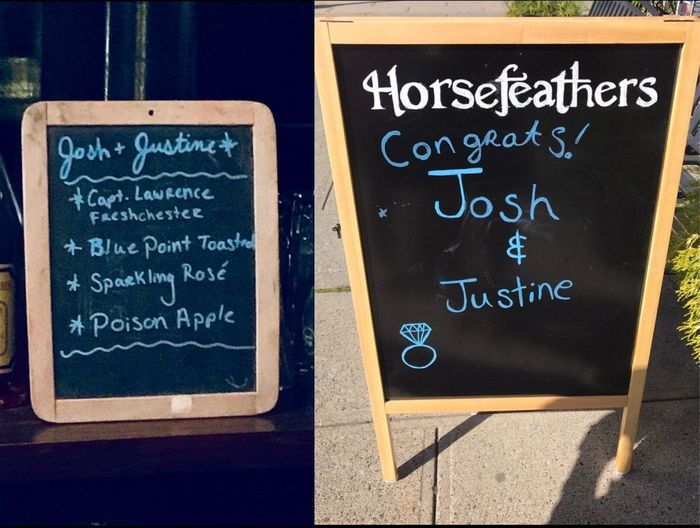 Josh + Justine *
* Capt. Lawrence
Freshchester
* Blue Point Toasted
* Sparkling Rosé
* Poison Apple
Horsefeathers
Congrats!
Josh
&
Justine